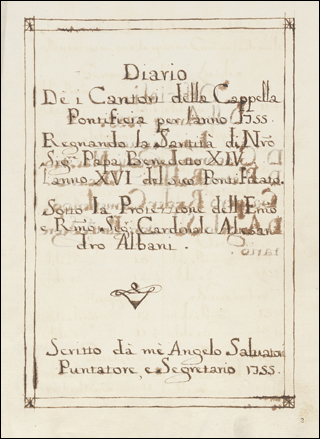 Diario
De i Cantori della Cappella
Pontificia per l'anno 1755.
Regnando la Santità di Nro
Sigr Papa Benedetto XIV.
l'anno XVI del suo Pontificato.
Sotto la Protezzione dell' Emo
e Rmo Sig Cardenale Alesan
dro Albani.
Scritto dà mè Angelo Salvatori
Puntatore, e Segretario 1755.
2